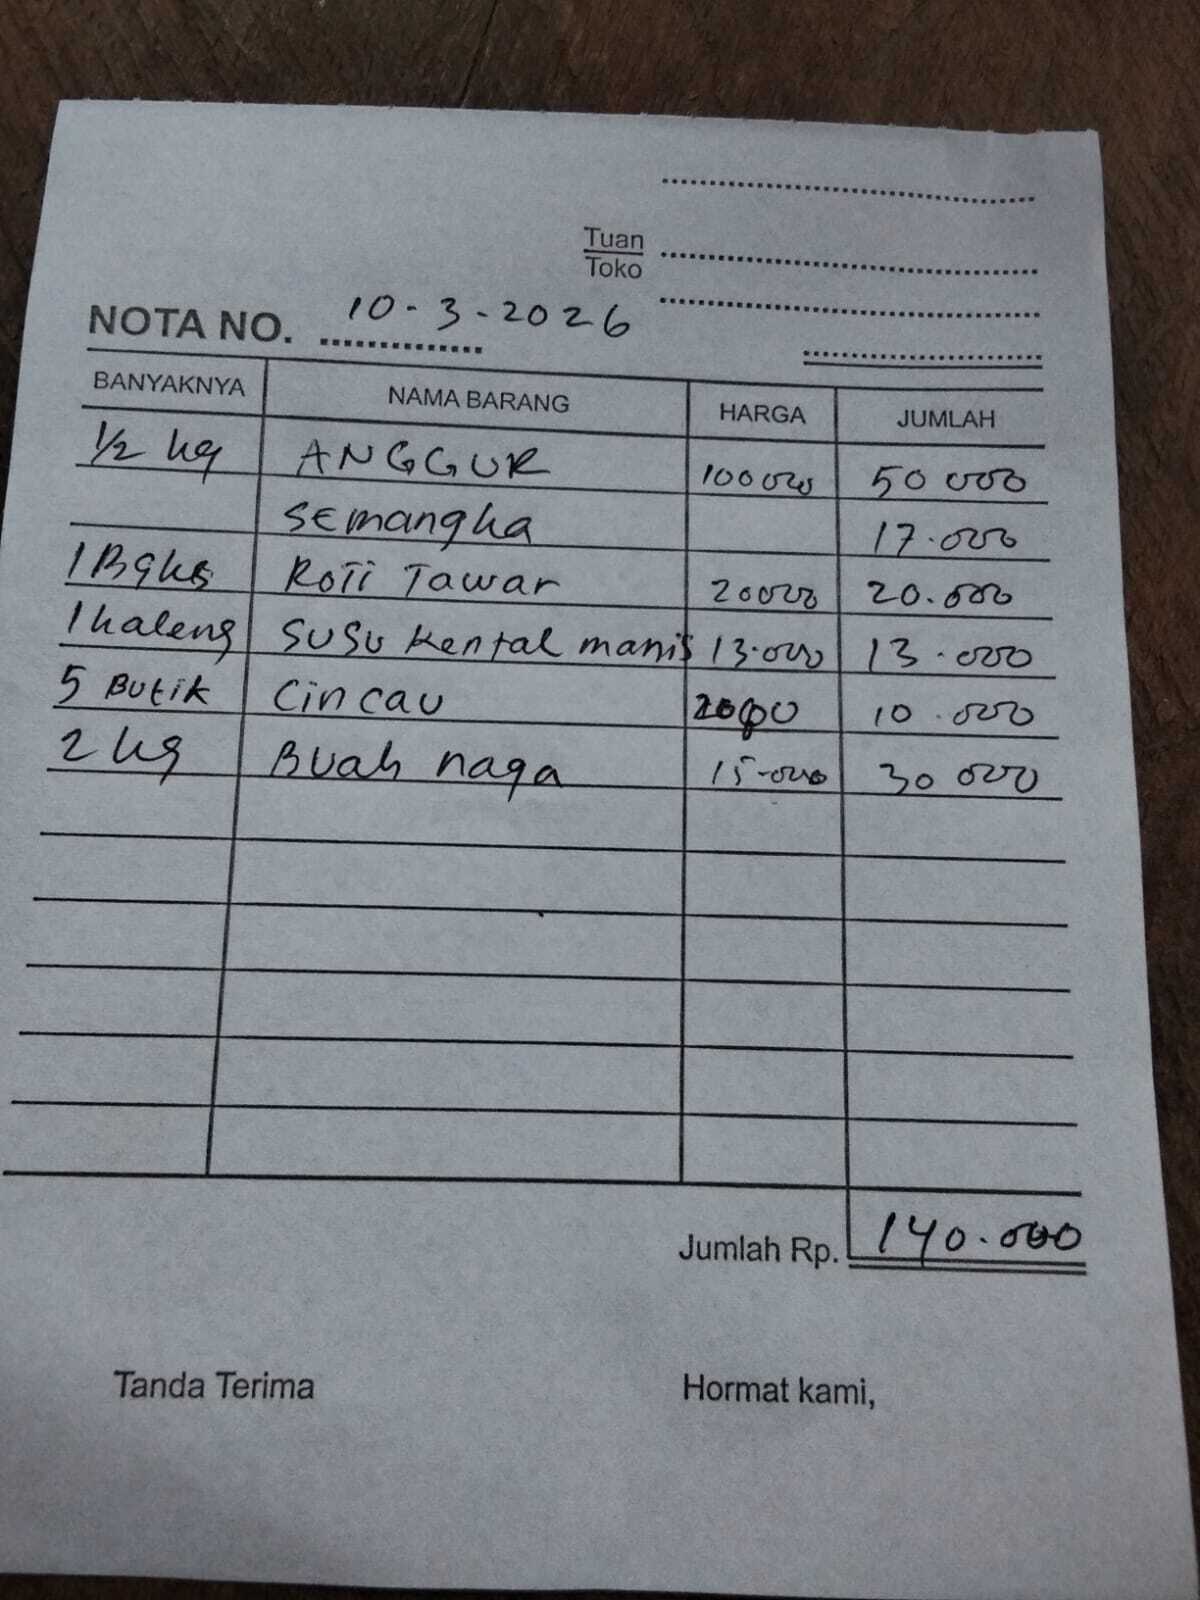 Tuan
Toko
NOTA NO. 10-3-2026
BANYAKNYA NAMA BARANG HARGA JUMLAH
1/2 kg ANGGUR 100000 50 000
Semangka 17.000
1 Bgks Roti Tawar 20000 20.000
1 kaleng SUSU Kental manis 13.000 13.000
5 Butik Cincau 2000 10.000
2 kg Buah naga 15.000 30 000
Jumlah Rp. 140.000
Tanda Terima Hormat kami,